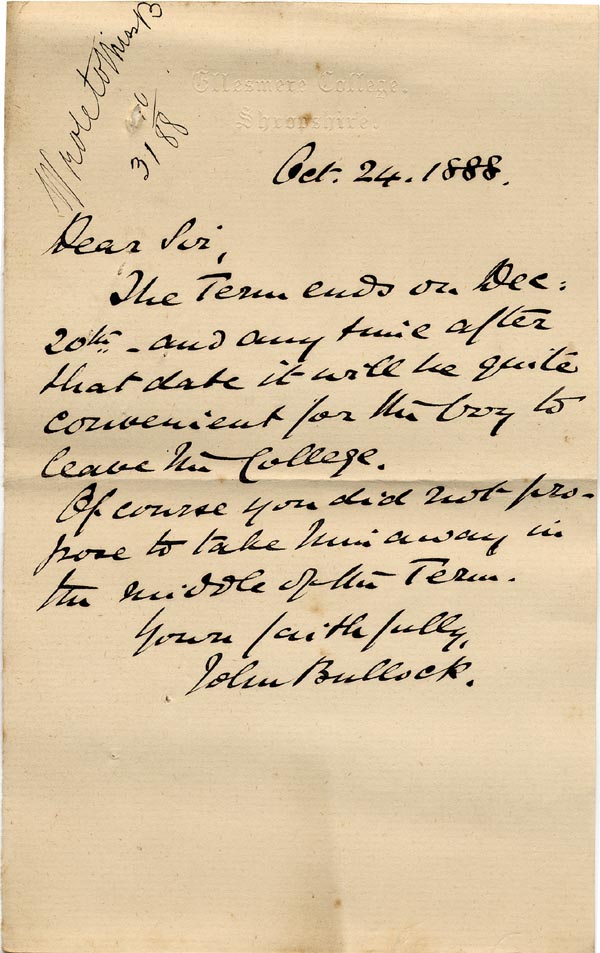 Wrote to Miss B
31/88
Ellesmere College.
Shropshire.
Oct. 24. 1888.
Dear Sir,
The Term ends on Dec:
20th - and any time after
that date it will be quite
convenient for the boy to
leave the College.
Of course you did not pro-
pose to take him away in
the middle of the Term.
Yours faithfully,
John Bullock.